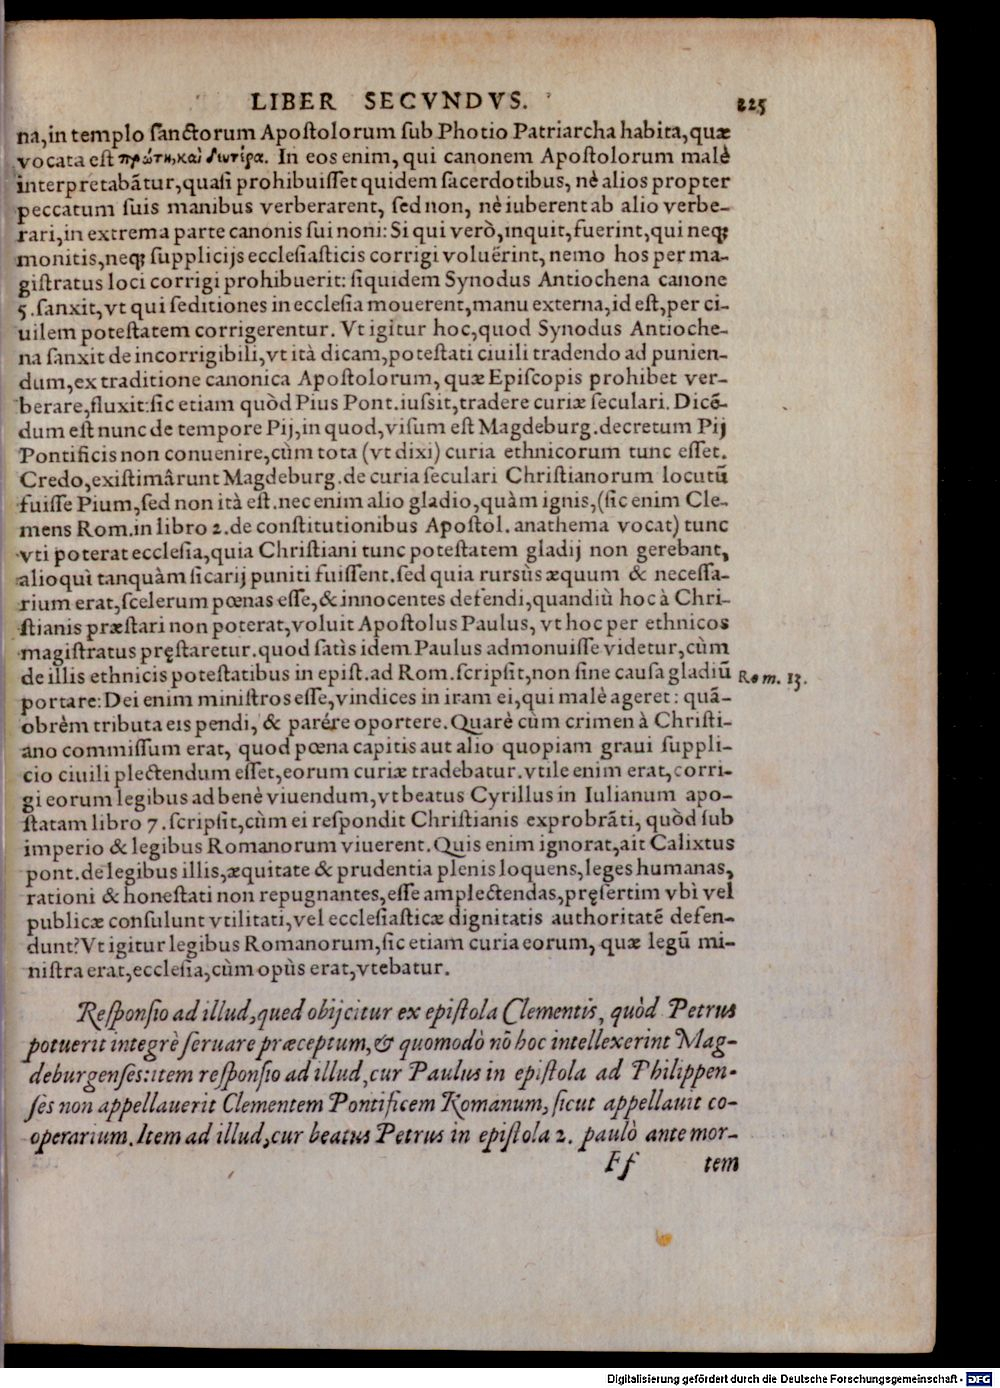 LIBER SECVNDVS. 225
na, in templo ſanctorum Apoſtolorum ſub Photio Patriarcha habita, quæ
vocata eſt πρώτη, καὶ δευτέρα. In eos enim, qui canonem Apoſtolorum malè
interpretabãtur, quaſi prohibuiſſet quidem ſacerdotibus, nè alios propter
peccatum ſuis manibus verberarent, ſed non, nè iuberent ab alio verbe-
rari, in extrema parte canonis ſui noni: Si qui verò, inquit, fuerint, qui neq;
monitis, neq; ſupplicijs eccleſiaſticis corrigi voluẽrint, nemo hos per ma-
giſtratus loci corrigi prohibuerit: ſiquidem Synodus Antiochena canone
5. ſanxit, vt qui ſeditiones in eccleſia mouerent, manu externa, id eſt, per ci-
uilem poteſtatem corrigerentur. Vt igitur hoc, quod Synodus Antioche-
na ſanxit de incorrigibili, vt ità dicam, poteſtati ciuili tradendo ad punien-
dum, ex traditione canonica Apoſtolorum, quæ Epiſcopis prohibet ver-
berare, fluxit: ſic etiam quòd Pius Pont. iuſsit, tradere curiæ ſeculari. Dicẽ-
dum eſt nunc de tempore Pij, in quod, viſum eſt Magdeburg. decretum Pij
Pontificis non conuenire, cùm tota (vt dixi) curia ethnicorum tunc eſſet.
Credo, exiſtimârunt Magdeburg. de curia ſeculari Chriſtianorum locutũ
fuiſſe Pium, ſed non ità eſt. nec enim alio gladio, quàm ignis, (ſic enim Cle-
mens Rom. in libro 2. de conſtitutionibus Apoſtol. anathema vocat) tunc
vti poterat eccleſia, quia Chriſtiani tunc poteſtatem gladij non gerebant,
alioquì tanquàm ſicarij puniti fuiſſent. ſed quia rursùs æquum & neceſſa-
rium erat, ſcelerum pœnas eſſe, & innocentes defendi, quandiù hoc à Chri-
ſtianis præſtari non poterat, voluit Apoſtolus Paulus, vt hoc per ethnicos
magiſtratus pręſtaretur. quod ſatìs idem Paulus admonuiſſe videtur, cùm
de illis ethnicis poteſtatibus in epiſt. ad Rom. ſcripſit, non ſine cauſa gladiũ Rom. 13.
portare: Dei enim miniſtros eſſe, vindices in iram ei, qui malè ageret: quã-
obrèm tributa eis pendi, & parére oportere. Quarè cùm crimen à Chriſti-
ano commiſſum erat, quod pœna capitis aut alio quopiam graui ſuppli-
cio ciuili plectendum eſſet, eorum curiæ tradebatur. vtile enim erat, corri-
gi eorum legibus ad benè viuendum, vt beatus Cyrillus in Iulianum apo-
ſtatam libro 7. ſcripſit, cùm ei reſpondit Chriſtianis exprobrãti, quòd ſub
imperio & legibus Romanorum viuerent. Quis enim ignorat, ait Calixtus
pont. de legibus illis, æquitate & prudentia plenis loquens, leges humanas,
rationi & honeſtati non repugnantes, eſſe amplectendas, pręſertim vbì vel
publicæ conſulunt vtilitati, vel eccleſiaſticæ dignitatis authoritatẽ defen-
dunt? Vt igitur legibus Romanorum, ſic etiam curia eorum, quæ legũ mi-
niſtra erat, eccleſia, cùm opùs erat, vtebatur.
Reſponſio ad illud, qued obijcitur ex epiſtola Clementis, quòd Petrus
potuerit integrè ſeruare præceptum, & quomodò nõ hoc intellexerint Mag-
deburgenſes: item reſponſio ad illud, cur Paulus in epiſtola ad Philippen-
ſes non appellauerit Clementem Pontificem Romanum, ſicut appellauit co-
operarium. Item ad illud, cur beatus Petrus in epiſtola 2. paulò ante mor-
Ff tem
Digitalisierung gefördert durch die Deutsche Forschungsgemeinschaft - DFG